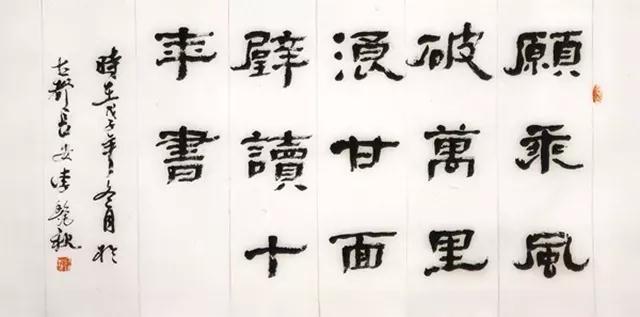 願乘風
破萬里
浪甘面
壁讀十
年書
時在戊子年冬月於
古都長安李秋